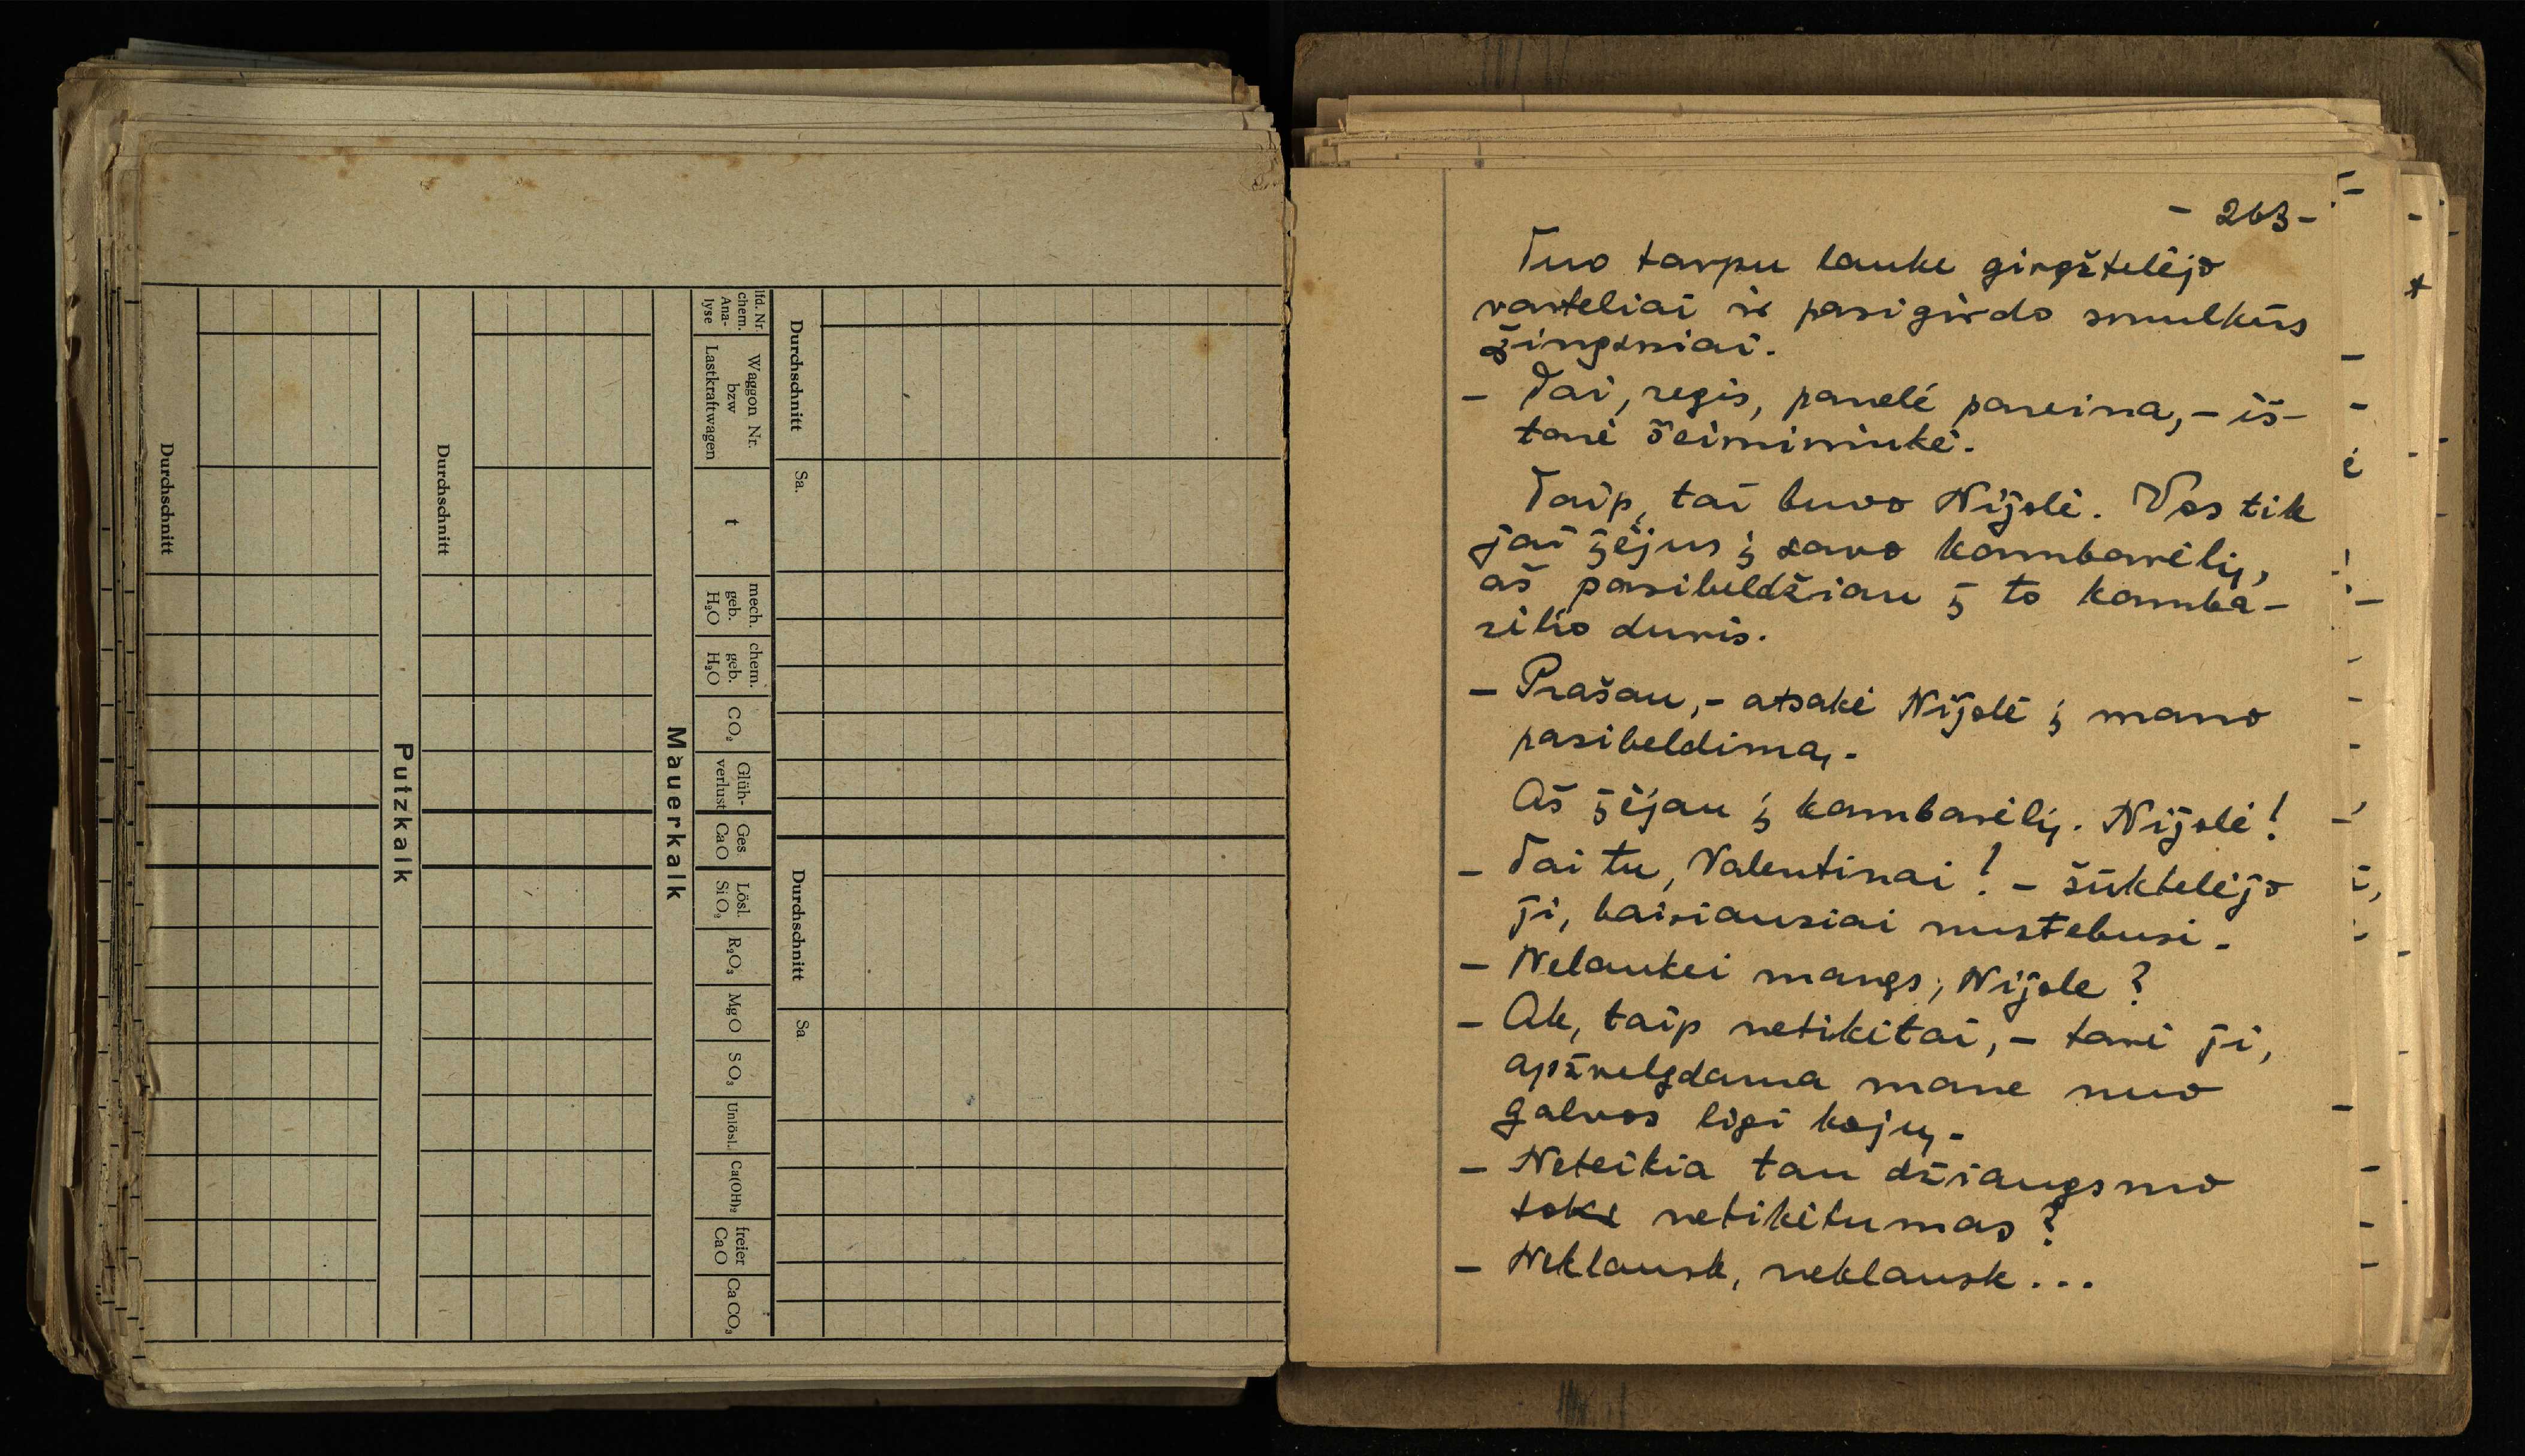 Durchschnitt
Sa.
Durchschnitt
Sa
lfd. Nr.
chem.
Ana-
lyse
Waggon Nr.
bzw
Lastkraftwagen
t
mech.
geb.
H₂O
chem.
geb.
H₂O
CO₂
Glüh-
verlust
Ges
CaO
Lösl.
SiO₂
R₂O₃
MgO
SO₃
Unlösl.
Ca(OH)₂
freier
CaO
CaCO₃
Mauerkalk
Durchschnitt
Putzkalk
Durchschnitt
- 263 -
Tuo tarpu lauke girgžtelėjo
varteliai ir pasigirdo smulkūs
žingsniai.
- Tai, regis, panelė pareina, - iš-
tarė šeimininkė.
Taip, tai buvo Nijolė. Vos tik
jai įėjus į savo kambarėlį,
aš pasibeldžiau į to kamba-
rėlio duris.
- Prašau, - atsakė Nijolė į mano
pasibeldimą.
Aš įėjau į kambarėlį. Nijolė!
- Tai tu, Valentinai! - šūktelėjo
ji, baisiausiai nustebusi.
- Nelaukei manęs, Nijole?
- Ak, taip netikėtai, - tarė ji,
apžvelgdama mane nuo
galvos ligi kojų.
- Neteikia tau džiaugsmo
toks netikėtumas?
- Neklausk, neklausk...